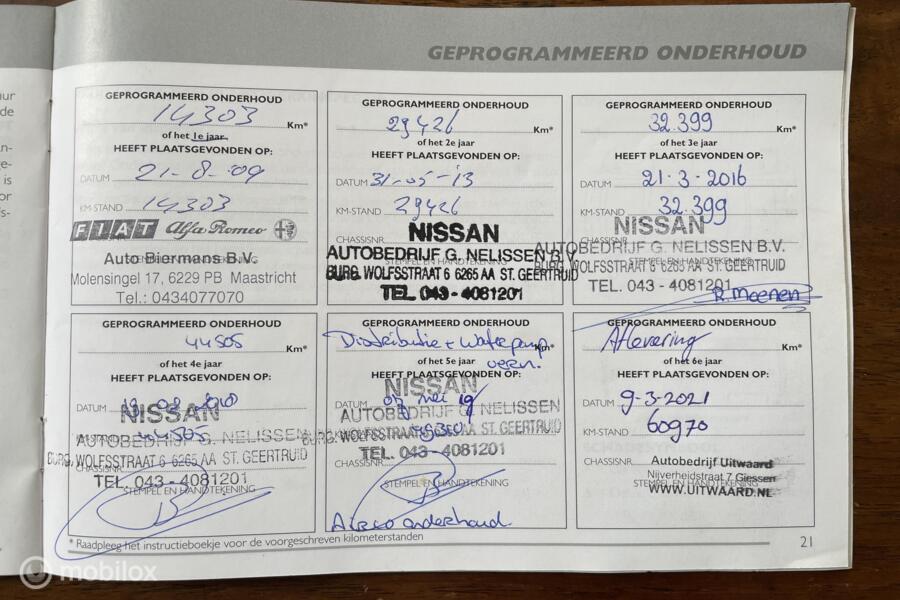 GEPROGRAMMEERD ONDERHOUD
GEPROGRAMMEERD ONDERHOUD
14303 Km*
of het 1e jaar
HEEFT PLAATSGEVONDEN OP:
DATUM 21-8-'09
KM-STAND 14303
FIAT Alfa Romeo
Auto Biermans B.V.
Molensingel 17, 6229 PB Maastricht
Tel.: 0434077070
GEPROGRAMMEERD ONDERHOUD
29426 Km*
of het 2e jaar
HEEFT PLAATSGEVONDEN OP:
DATUM 31-05-13
KM-STAND 29426
CHASSISNR. NISSAN
AUTOBEDRIJF G. NELISSEN B.V.
STEMPEL EN HANDTEKENING
BURG. WOLFSSTRAAT 6 6265 AA ST. GEERTRUID
TEL. 043 - 4081201
GEPROGRAMMEERD ONDERHOUD
32.399 Km*
of het 3e jaar
HEEFT PLAATSGEVONDEN OP:
DATUM 21-3-2016
KM-STAND 32.399
CHASSISNR. NISSAN
AUTOBEDRIJF G. NELISSEN B.V.
BURG. WOLFSSTRAAT 6 6265 AA ST. GEERTRUID
TEL. 043 - 4081201
R. Moenen
GEPROGRAMMEERD ONDERHOUD
44505 Km*
of het 4e jaar
HEEFT PLAATSGEVONDEN OP:
DATUM
NISSAN
44505
AUTOBEDRIJF G. NELISSEN
BURG. WOLFSSTRAAT 6 6265 AA ST. GEERTRUID
CHASSISNR.
TEL. 043 - 4081201
STEMPEL EN HANDTEKENING
GEPROGRAMMEERD ONDERHOUD
Distributie + Waterpomp Km*
of het 5e jaar vern.
HEEFT PLAATSGEVONDEN OP:
NISSAN
DATUM mei 19
AUTOBEDRIJF G. NELISSEN
BURG. WOLFSSTRAAT ST. GEERTRUID
TEL. 043-4081201
STEMPEL EN HANDTEKENING
Airco onderhoud
GEPROGRAMMEERD ONDERHOUD
Aflevering Km*
of het 6e jaar
HEEFT PLAATSGEVONDEN OP:
DATUM 9-3-2021
KM-STAND 60970
CHASSISNR. Autobedrijf Uitwaard
Nijverheidstraat 7 Giessen
WWW.UITWAARD.NL
* Raadpleeg het instructieboekje voor de voorgeschreven kilometerstanden
21
mobilox